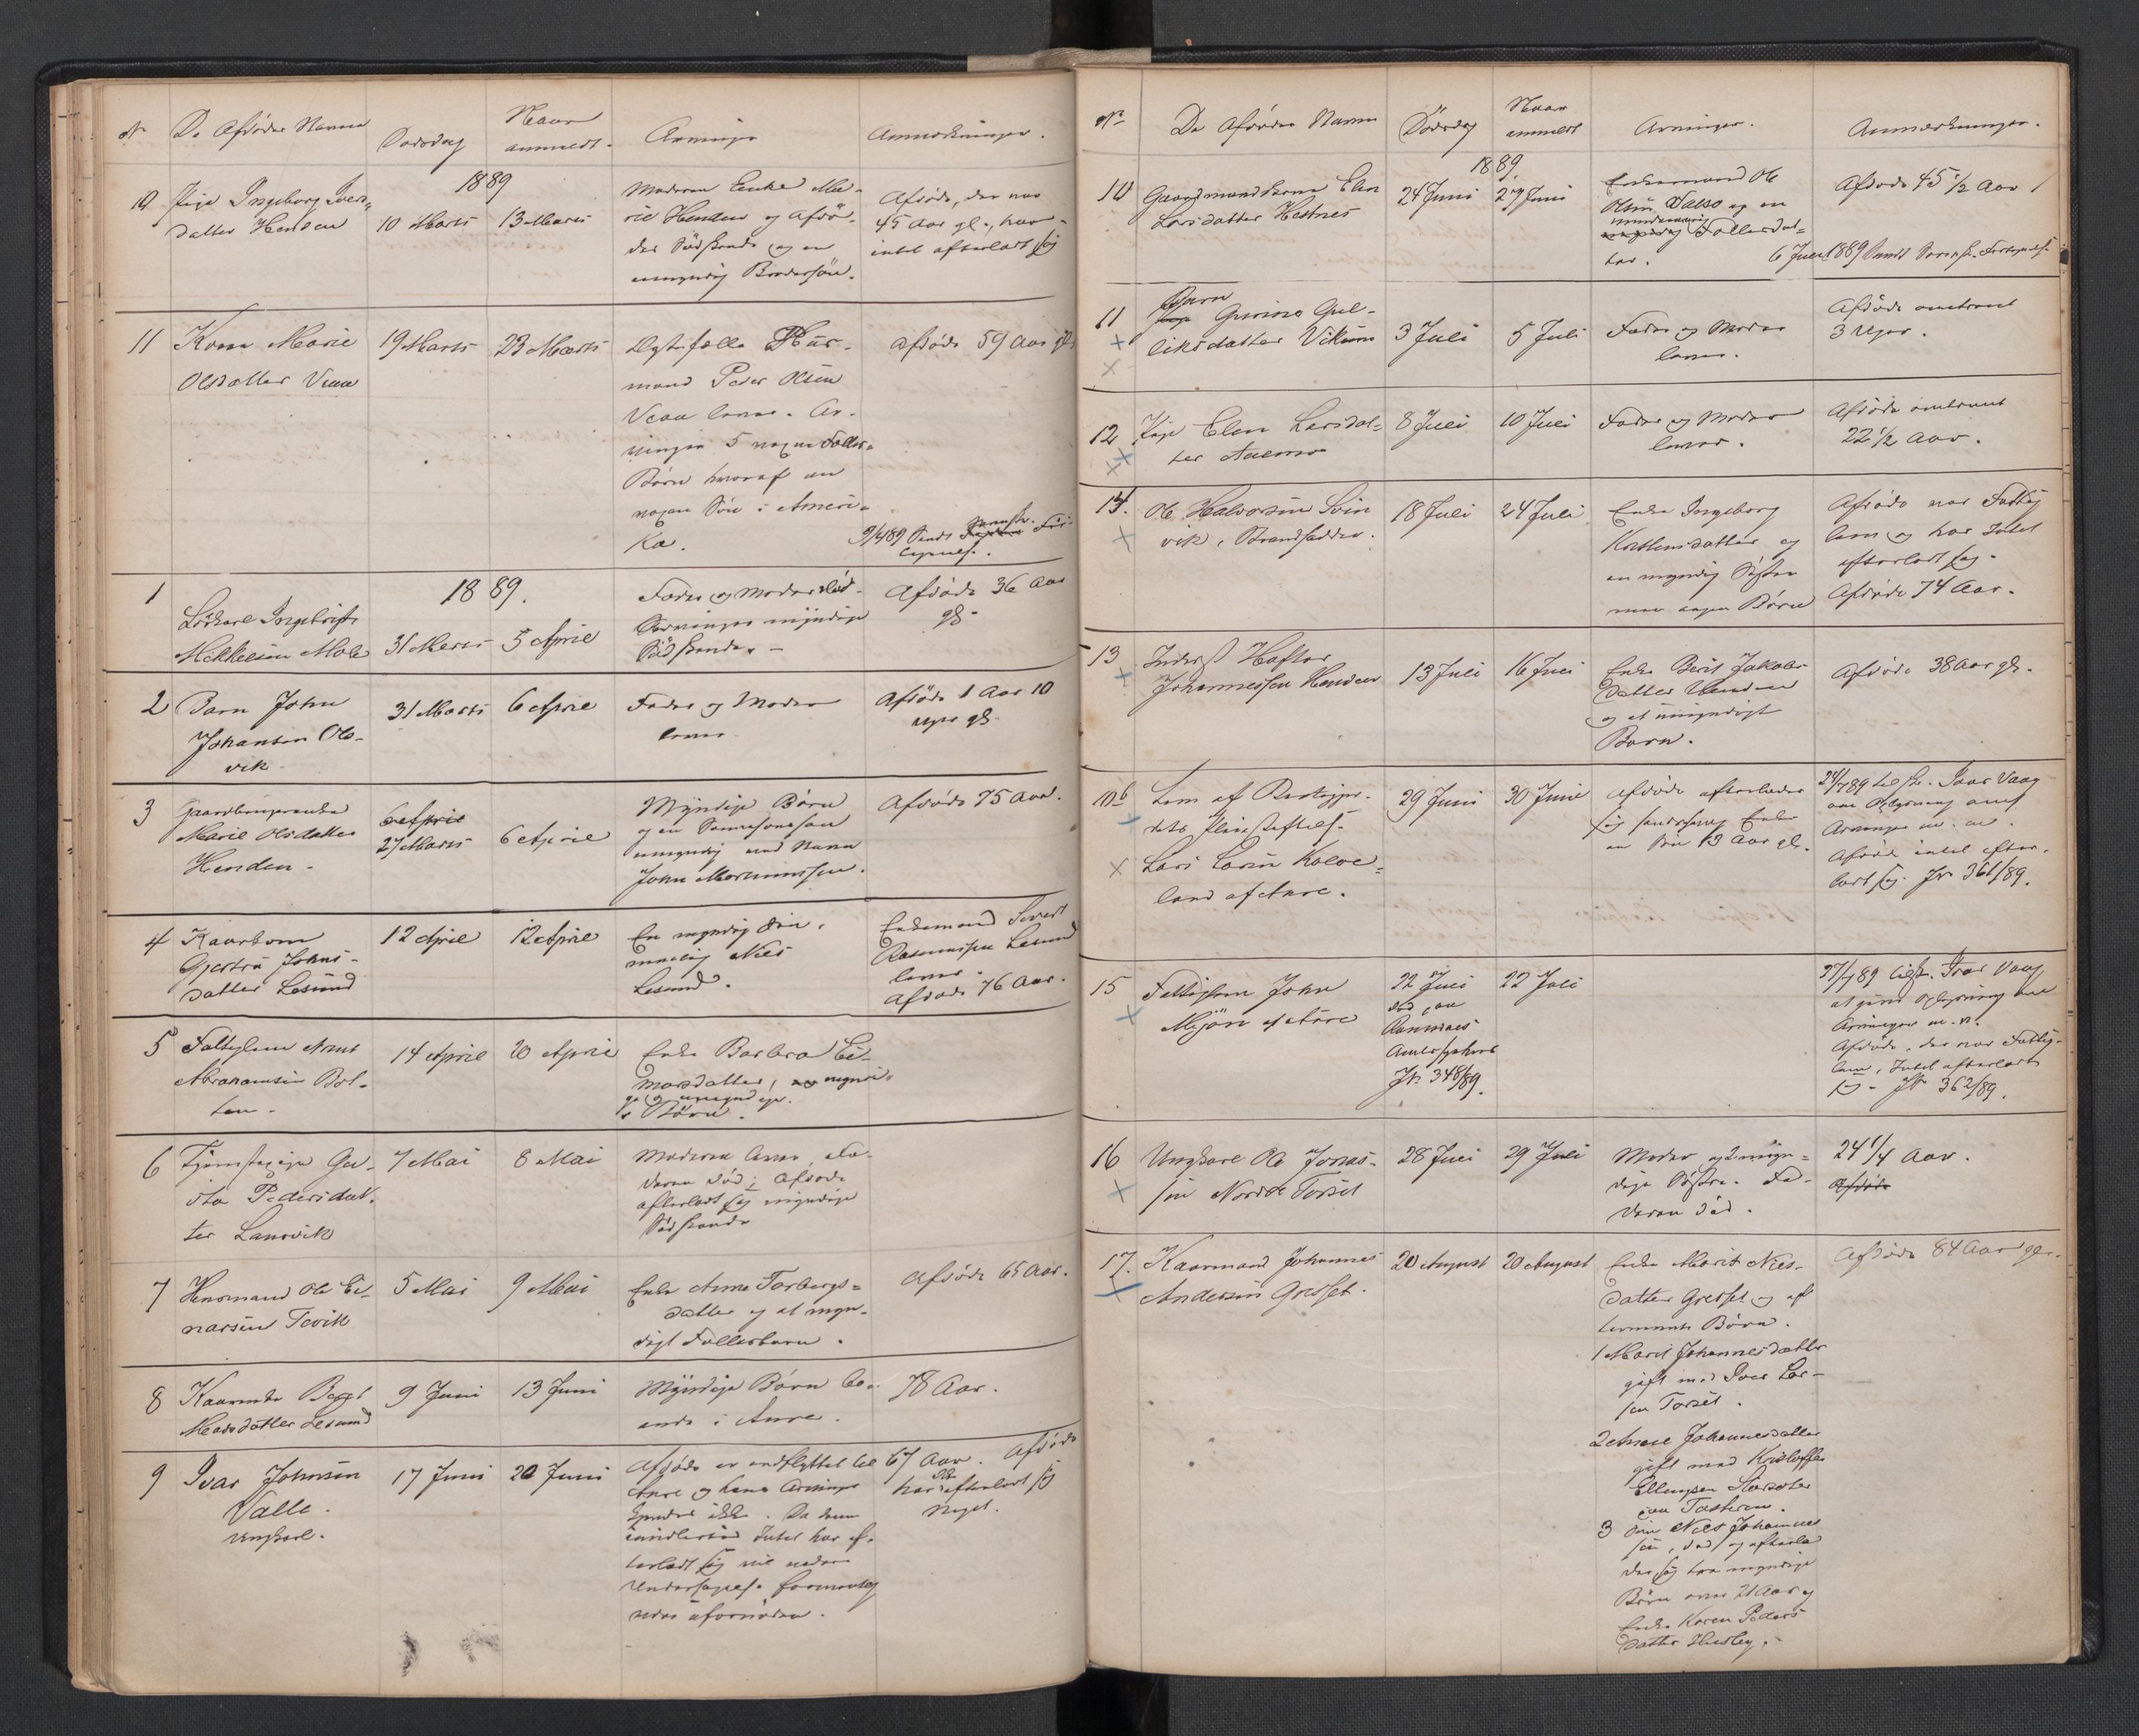 No De Afdødes Navne Dødsdag Naar anmeldt. Arvinger Anmerkninger.
1889
10 Pige Ingeborg Iver-
datter Henden
10 Marts
13 Marts
Moderen Enke Ma-
rie Henden og Afdø-
des Södskende og en
umyndig Brodersön.
Afdøde, der var
45 Aar gl., har
intet efterladt sig
11 Kone Marie
Olsdatter Vean
19 Marts
23 Marts
Ægtefælle Hus-
mand Peder Olsen
Vean lever. Ar-
vinger 5 Fælles-
Børn hvoraf en
Sön i Ameri-
ka.
Afdøde 59 Aar gl.
9/4 89 Sendt
1889.
1
Ungkarl Ingebrigt
Mikkelsen Moe
31 Marts
5 April
Fader og Moder död.
Arvinger myndige
Södskende.
Afdøde 36 Aar
gl.
2 Barn John
Johansen Ols-
vik
31 Marts
6 April
Fader og Moder
lever
Afdöde 1 Aar 10
uger gl.
3 Gaardbrugerenke
Marie Olsdatter
Henden.
6 April
27 Marts
6 April
Myndige Börn
og en Sönnesönn
umyndig ved Navn
John
Afdöde 75 Aar.
4 Kaarkone
Gjertru Johns-
datter Lesund
12 April
12 April
En myndig Sön,
nemlig Nils
Lesund.
Enkemand Sivert
Rasmussen Lesund
lever.
Afdøde 76 Aar.
5 Fattiglem Arnt
Abrahamsen Bol-
ten.
14 April
20 April
Enke Barbra Ei-
narsdatter, myndi-
ge og umyndige
Börn.
6 Tjenestepige Gu-
Pedersdat-
ter Lansvik
7 Mai
8 Mai
Moderen lever, Fa-
deren död; Afdøde
efterladt sig myndige
Södskende
7 Husmand Ole Ei-
narsen Tevik
5 Mai
9 Mai
Enke Anne Torbergs-
datter og et myn-
digt Fællesbarn.
Afdöde 65 Aar.
8 Kaarenke Beret
Madsdatter Lesund
9 Juni
13 Juni
Myndige Börn bo-
ende i Aure.
78 Aar.
9 Ivar Johnsen
Valle.
Ungkarl.
17 Juni
20 Juni
Afdøde er indflyttet til
Aure og hans Arvinger
kjendes ikke. Da han
imidlertid Intet har ef-
terladt sig vil nedre
Undersøgelse formentlig
være ufornöden.
67 Aar. Afdøde
har ikke efterladt sig
Noget.
No De Afdødes Navne Dödsdag Naar anmeldt Arvinger. Anmærkninger.
1889.
10 Gaardmandskone Elen
Larsdatter Hestnes
24 Juni
27 Juni
Enkemand Ole
Olsen Valsø og en
mindreaarig
Fællesdat-
ter.
Afdøde 45 1/2 Aar
6 Juli 1889 Sendt
11 Barn
Gurine Gul-
liksdatter Viken
3 Juli
5 Juli
Fader og Moder
lever.
Afdöde omtrent
3 Uger.
12 Pige Elen Larsdat-
ter
8 Juli
10 Juli
Fader og Moder
lever.
Afdöde omtrent
22 1/2 Aar.
14. Ole Halvorsen Svin
vik, Strandsidder.
18 Juli
24 Juli
Enke Ingeborg
og
en myndig Söster
men ingen Børn
Afdøde var Fattig
lem og har Intet
efterladt sig.
Afdøde 74 Aar.
13 Inderst Haftor
Johannessen Henden
13 Juli
16 Juli
Enke Berit Jakobs
datter Henden
og et umyndigt
Barn.
Afdøde 38 Aar gl.
Lem af
Lars Larsen Kolve-
land af Aure.
29 Juni
30 Juni
Afdöde efterlader
sig Enke
en Sön 13 Aar gl.
27/7 89 Ivar Vaag
om Oplysning om
Arvinger m. m.
Afdøde intet efter-
ladt sig. Jr 361/89.
15 Fattiglem John
Mjøen af Aure
22 Juli
död paa
Romsdals
Amtssygehus
Jr 348/89.
22 Juli
27/7 89 Ivar Vaag
at give Oplysning om
Arvinger m. v.
Afdøde, der var Fattig-
lem, Intet efterladt
sig. Jr 362/89.
16 Ungkarl Ole Jonas-
sen Nordre Torset
28 Juli
29 Juli
Moder og 2 myn-
dige Söstre. Fa-
deren død.
24 1/4 Aar.
Afdøde
17. Kaarmand Johannes
Andersen Gresset.
20 August
20 August
Enke Marit Nils-
datter Gresset og ef
ternævnte Börn.
1 Marit Johannesdatter
gift med Iver Lar-
sen Torset.
2 Anne Johannesdatter
gift med Kristoffer
Ellingsen
paa Tusteren.
3 Sön Nils Johannes
sen, död, og efterla
der sig tre myndige
Börn over 21 Aar og
Enke Karen Peders
datter Husby.
Afdøde 84 Aar gl.